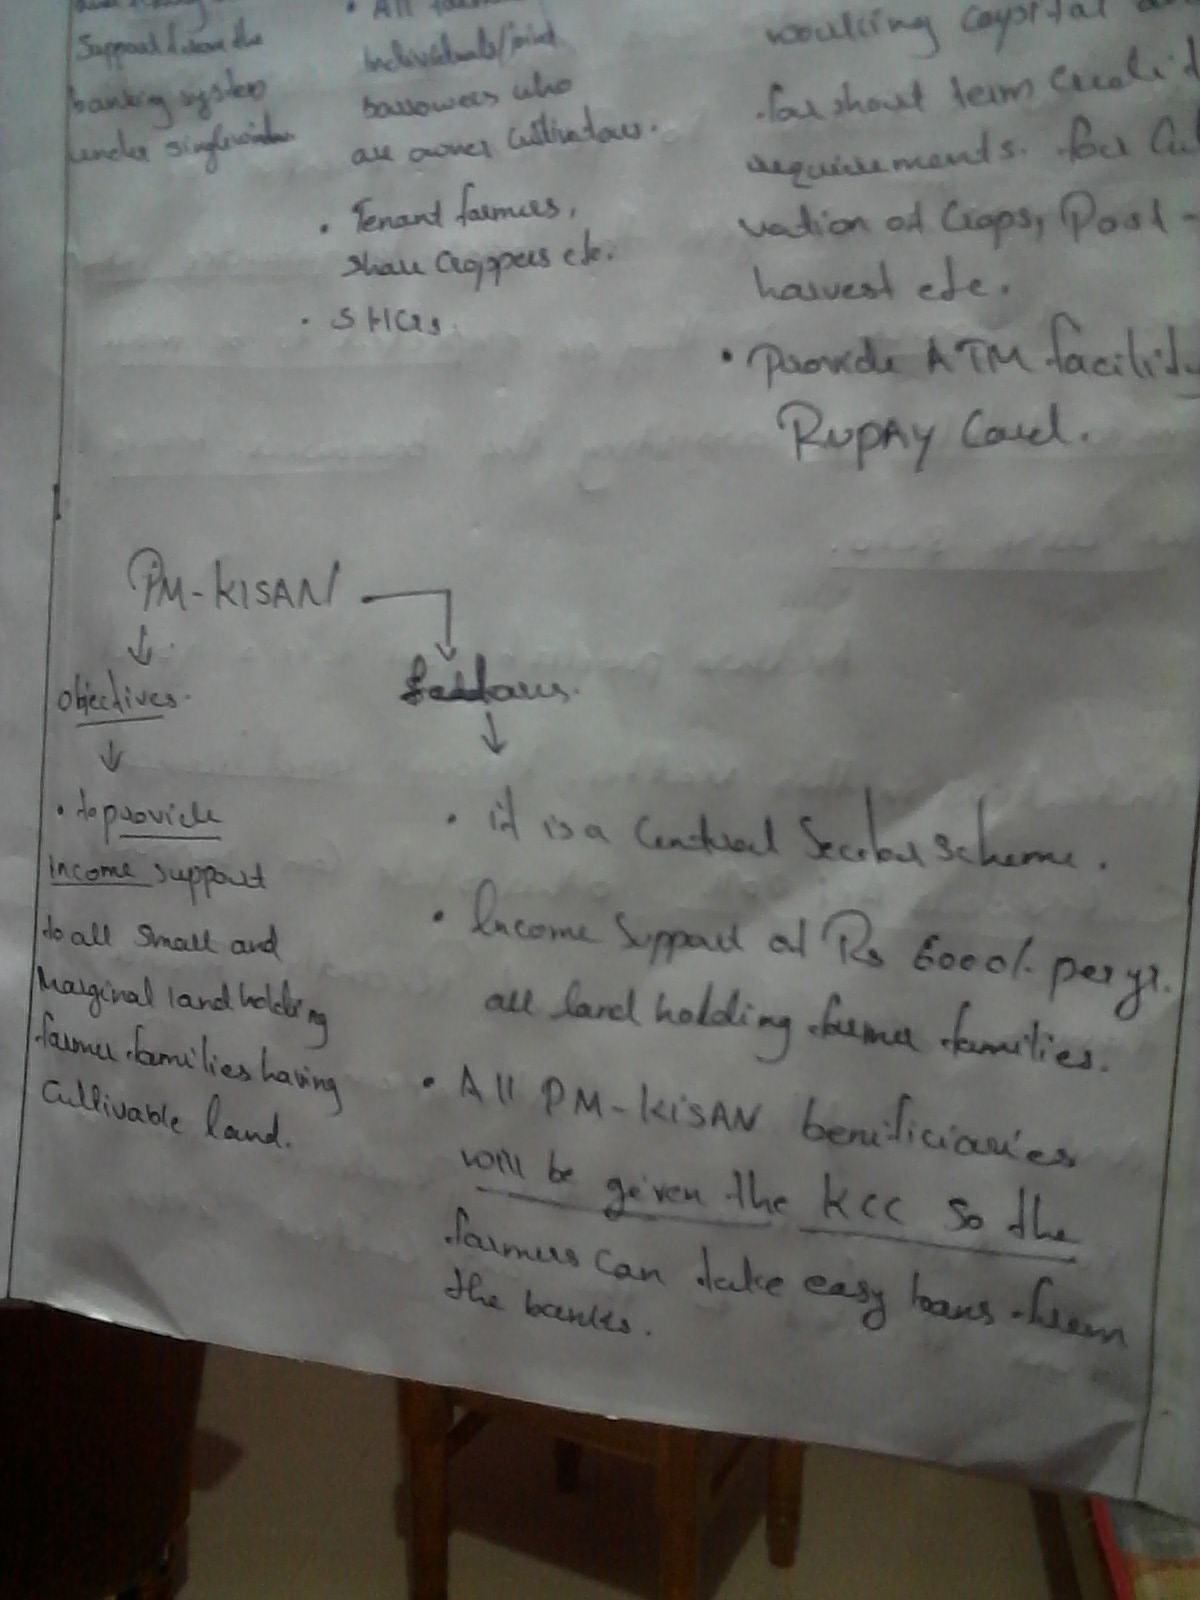 Support from the
banking system
under single window
• All
individuals/joint
borrowers who
are owner cultivators.
• Tenant farmers,
share croppers etc.
• SHGs.
working capital
for short term credit
requirements. for Cul
vation of Crops, Post -
harvest etc.
• Provide ATM facility
RUPAY Card.
PM-KISAN
Objectives.
• to provide
income support
to all small and
Marginal land holding
farmer families having
Cultivable land.
Features.
• it is a Central Sector scheme.
• Income support of Rs 6000/- per yr.
all land holding farmer families.
• All PM-KISAN beneficiaries
will be given the KCC so the
farmers can take easy loans from
the banks.